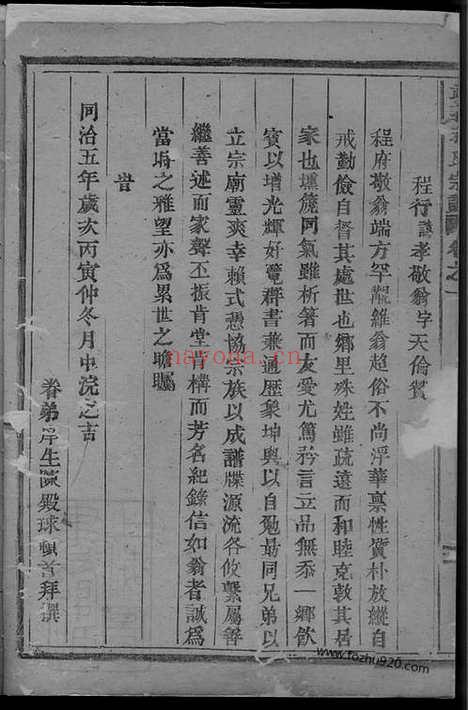 宗譜 卷之一
程行諱孝敬翁字天倫贊
程府敬翁端方罕覯維翁超俗不尚浮華稟性質朴放縱自
戒勤儉自督其處世也鄉里殊姓雖疏遠而和睦克敦其居
家也壎篪同氣雖析箸而友愛尤篤矜言立品無忝一鄉飲
賓以增光輝好覽群書兼通歷象坤輿以自勉最同兄弟以
立宗廟靈爽幸賴式憑協宗族以成譜牒源流各攸繫屬善
繼善述而家聲丕振肯堂肯構而芳名紀錄信如翁者誠爲
當時之雅望亦爲累世之瞻矚
旹
同治五年歲次丙寅仲冬月中浣之吉
眷弟庠生陳殿球頓首拜撰
nayona.cn
www.fozhu920.com